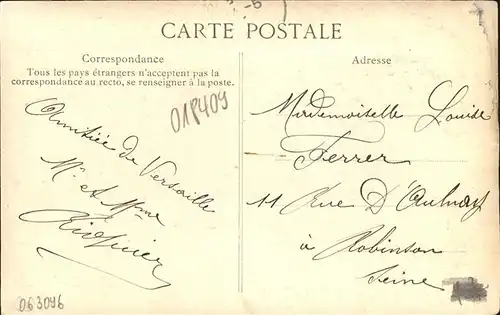 CARTE POSTALE
Correspondance
Tous les pays étrangers n'acceptent pas la
correspondance au recto, se renseigner à la poste.
Adresse
018409
Amitiée de Versaille
Mr et Mme
Mademoiselle Louise
Ferrer
11 Rue D'Aulnay
à Robinson
Seine
063096